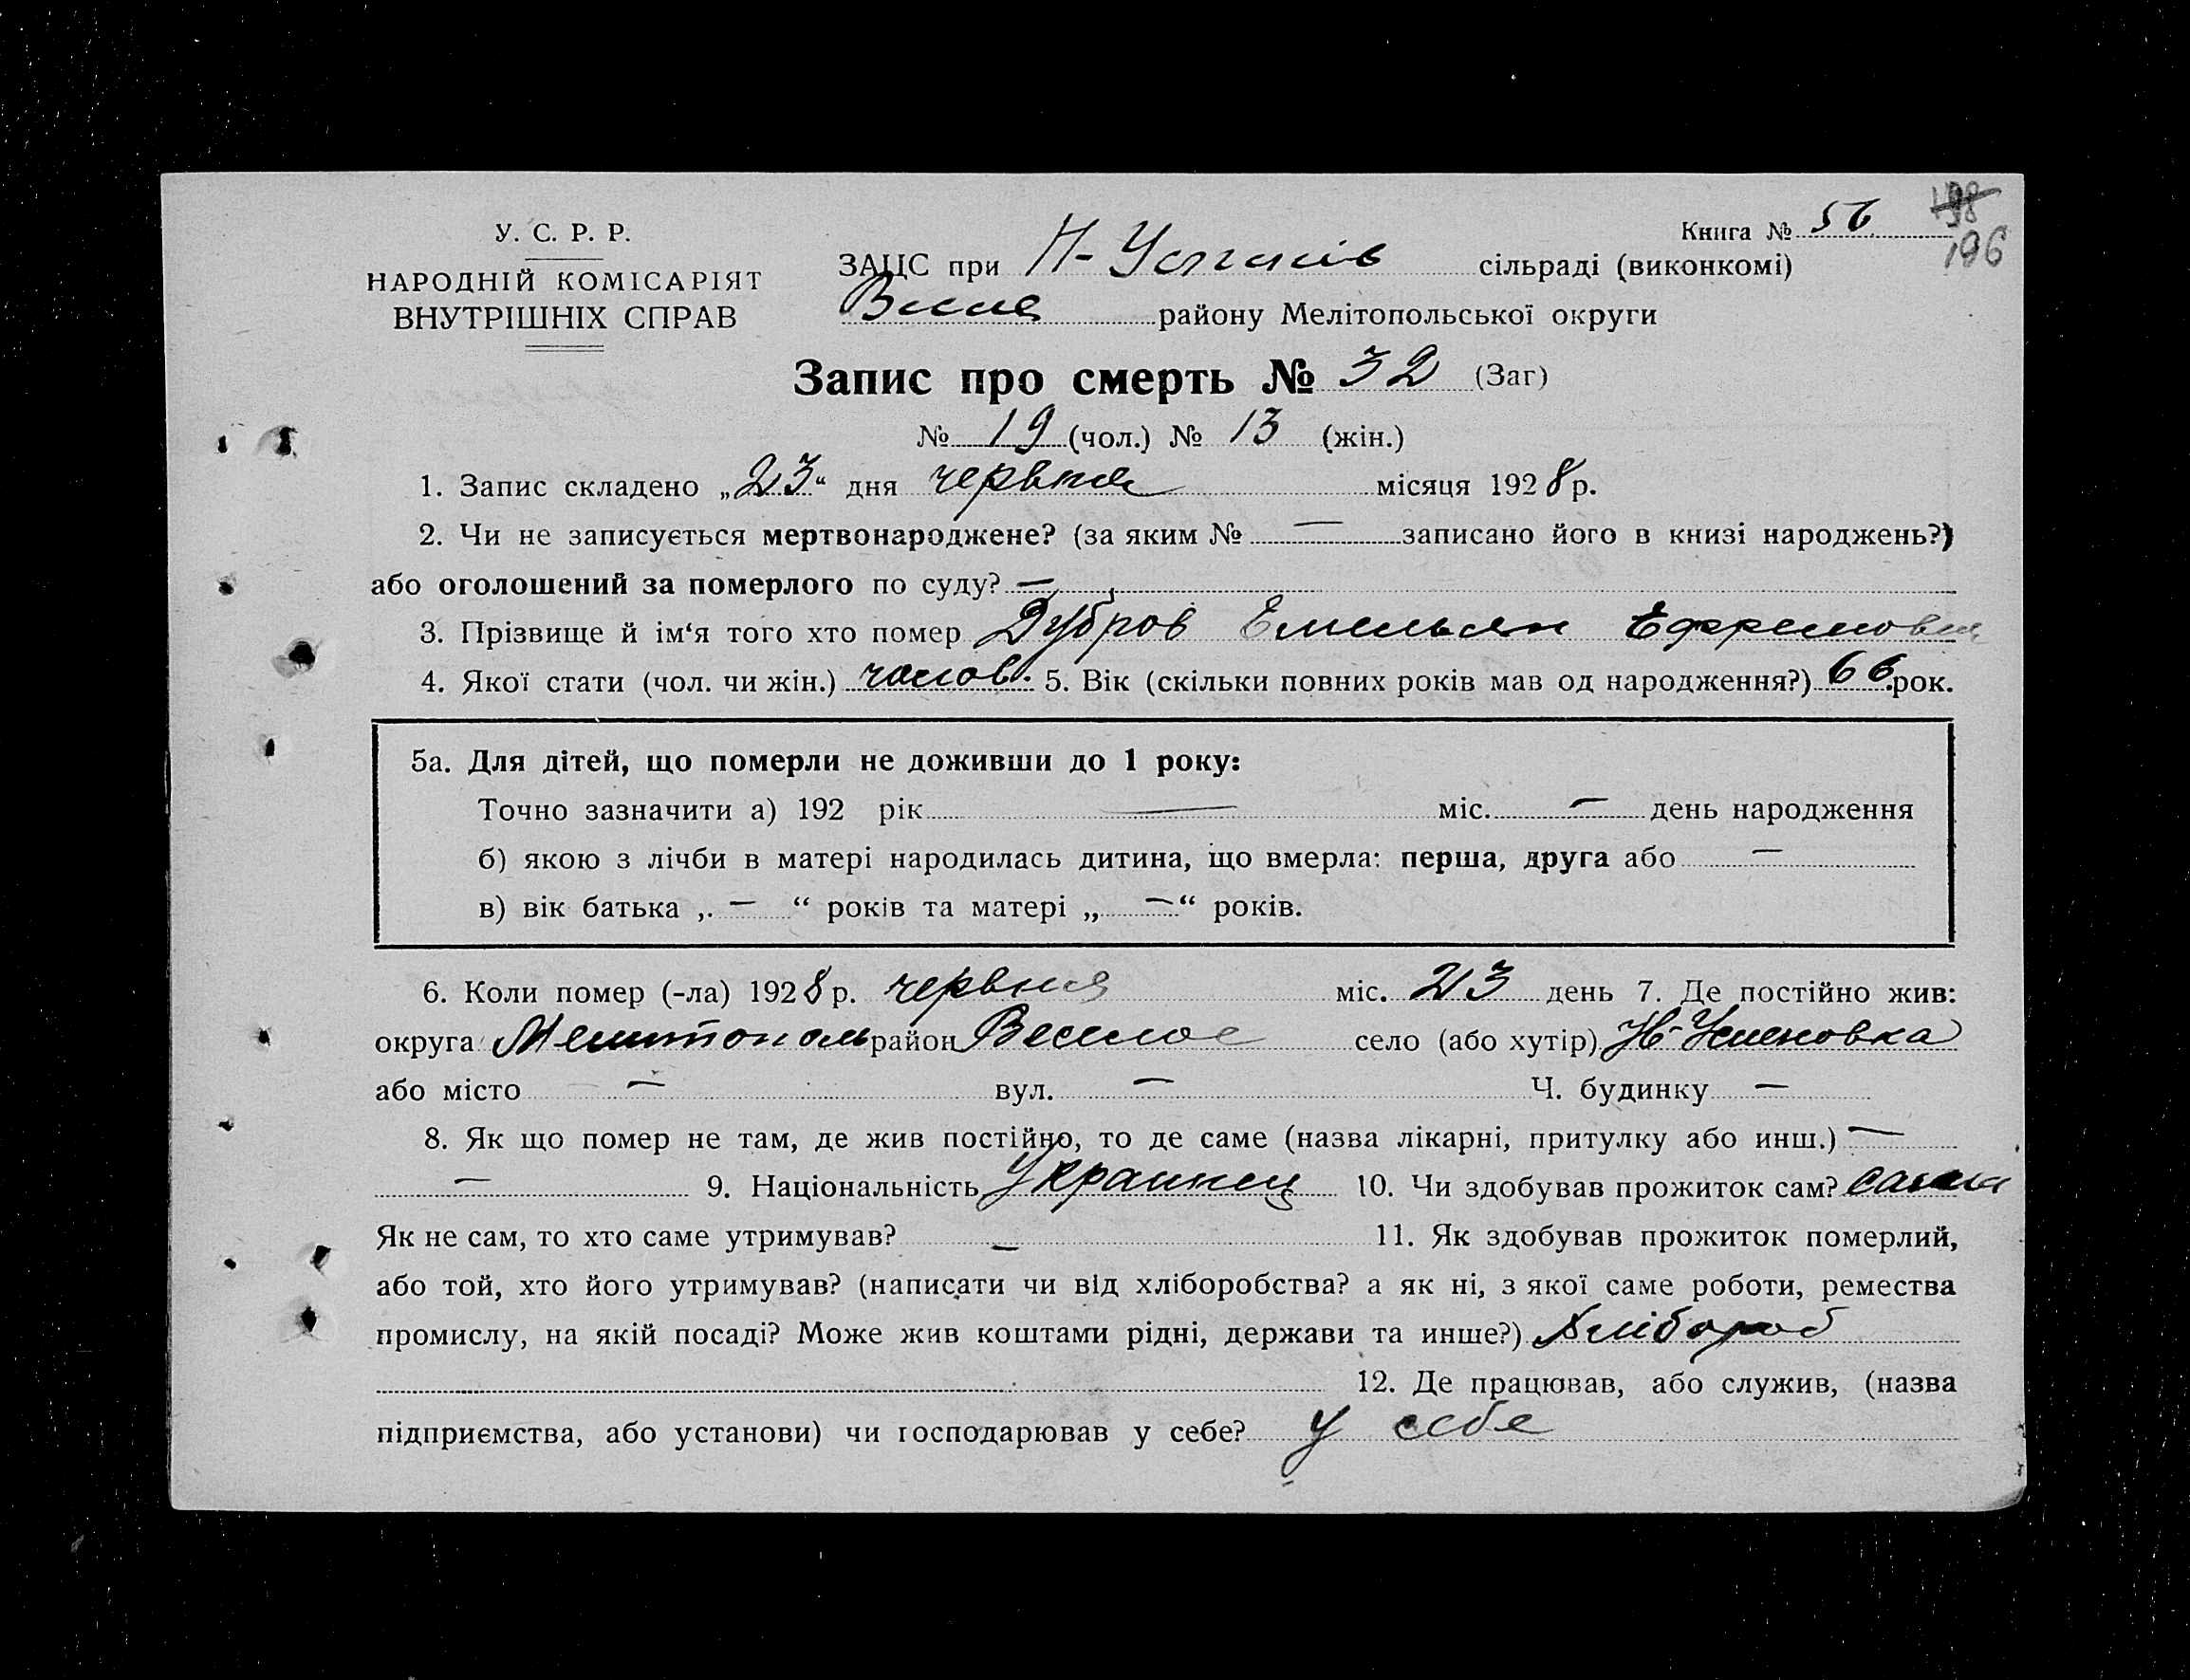 У. С. Р. Р.
НАРОДНІЙ КОМІСАРІЯТ
ВНУТРІШНІХ СПРАВ
Книга № 56
198
196
ЗАЦС при Н- сільраді (виконкомі)
району Мелітопольської округи
Запис про смерть № 32 (Заг)
№ 19 (чол.) № 13 (жін.)
1. Запис складено „23“ дня червня місяця 1928 р.
2. Чи не записується мертвонароджене? (за яким № — записано його в книзі народжень?)
або оголошений за померлого по суду? —
3. Прізвище й ім‘я того хто помер Дубров Емельян Ефремович
4. Якої стати (чол. чи жін.) чолов. 5. Вік (скільки повних років мав од народження?) 66 рок.
5а. Для дітей, що померли не доживши до 1 року:
Точно зазначити а) 192 рік — міс. — день народження
б) якою з лічби в матері народилась дитина, що вмерла: перша, друга або —
в) вік батька „ — “ років та матері „ — “ років.
6. Коли помер (-ла) 1928 р. червня міс. 23 день 7. Де постійно жив:
округа Мелитополь район Веселое село (або хутір) Н-Успеновка
або місто — вул. — Ч. будинку —
8. Як що помер не там, де жив постійно, то де саме (назва лікарні, притулку або инш.) —
— 9. Національність Украинец 10. Чи здобував прожиток сам? сам
Як не сам, то хто саме утримував? — 11. Як здобував прожиток померлий,
або той, хто його утримував? (написати чи від хліборобства? а як ні, з якої саме роботи, ремества
промислу, на якій посаді? Може жив коштами рідні, держави та инше?) Хлібороб
12. Де працював, або служив, (назва
підприємства, або установи) чи господарював у себе? у себе